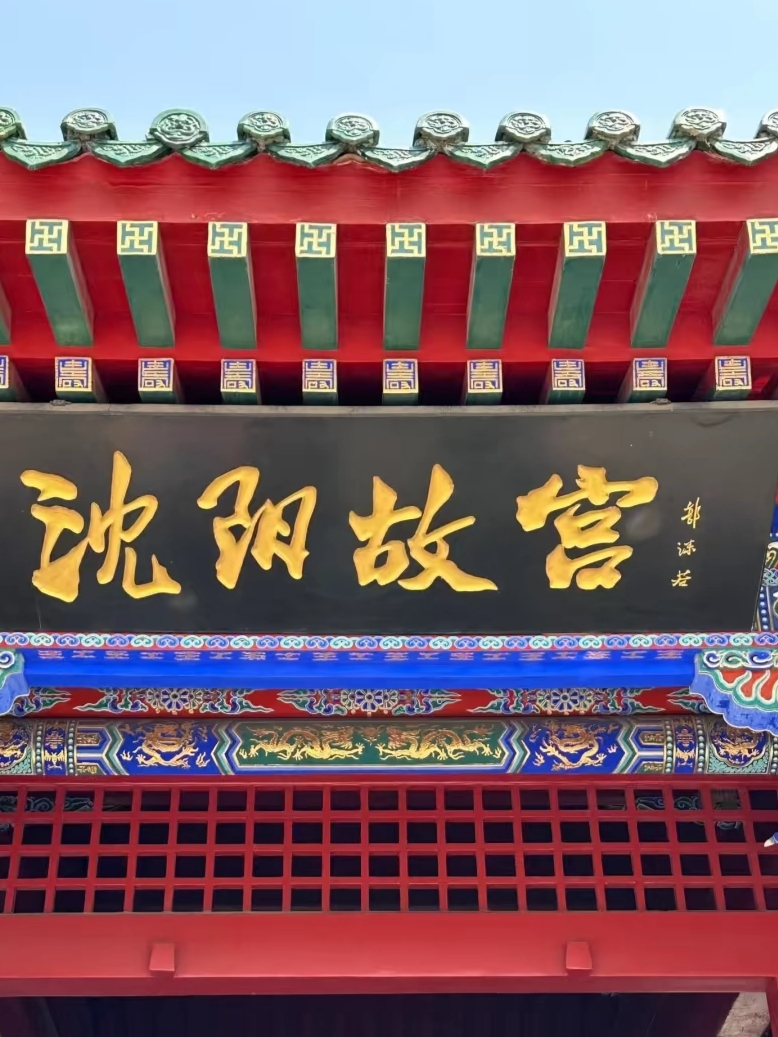 沈阳故宫
郭沫若